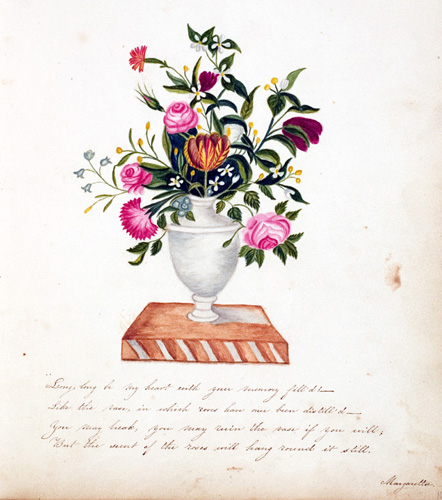 "Long, long be my heart with your memory fill'd!—
Like the vase, in which roses have once been distill'd—
You may break, you may ruin the vase if you will,
But the scent of the roses will hang round it still.
Margaretta